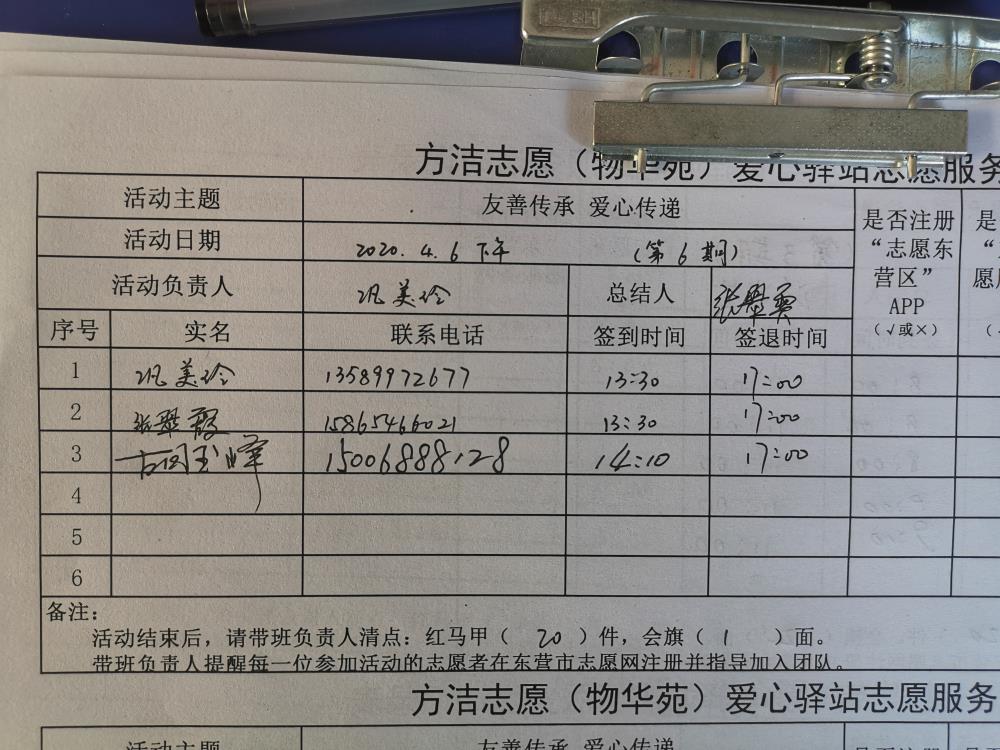 方洁志愿（物华苑）爱心驿站志愿服务
活动主题 友善传承 爱心传递
活动日期 2020.4.6下午 （第6期）
是否注册“志愿东营区”APP（√或×）
活动负责人 巩美玲 总结人
序号 实名 联系电话 签到时间 签退时间
1 巩美玲 13589972677 13:30 17:00
2 张翠霞 15865466021 13:30 17:00
3 15006888128 14:10 17:00
4
5
6
备注：
活动结束后，请带班负责人清点：红马甲（20）件，会旗（1）面。
带班负责人提醒每一位参加活动的志愿者在东营市志愿网注册并指导加入团队。
方洁志愿（物华苑）爱心驿站志愿服务
活动主题 友善传承 爱心传递